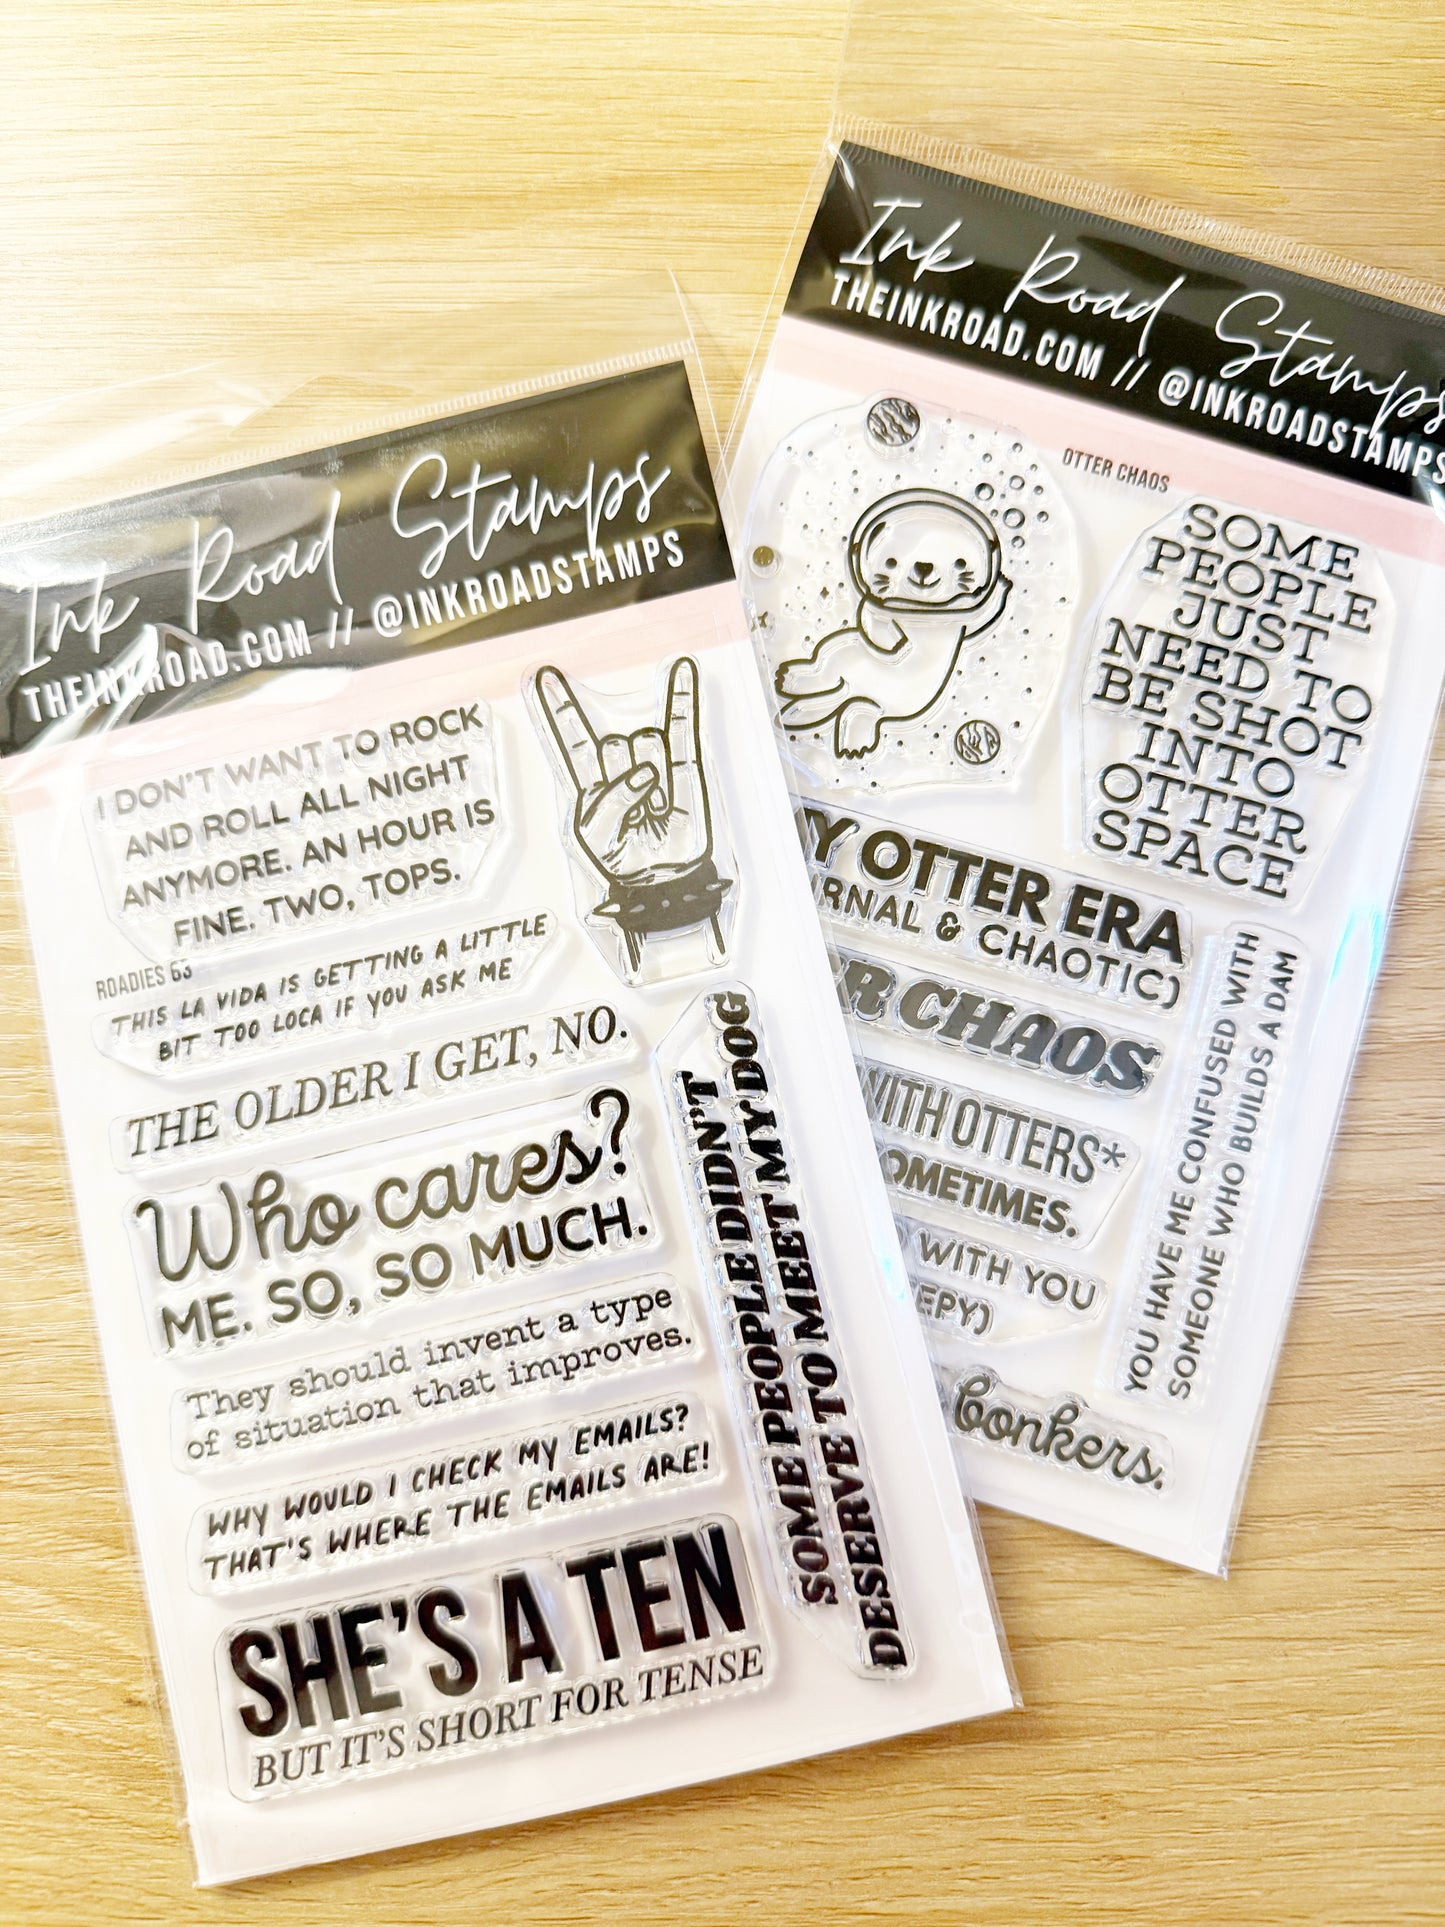 Ink Road Stamps
THEINKROAD.COM // @INKROADSTAMPS
I DON'T WANT TO ROCK
AND ROLL ALL NIGHT
ANYMORE. AN HOUR IS
FINE. TWO, TOPS.
ROADIES 63
THIS LA VIDA IS GETTING A LITTLE
BIT TOO LOCA IF YOU ASK ME
THE OLDER I GET, NO.
Who cares?
ME. SO, SO MUCH.
They should invent a type
of situation that improves.
WHY WOULD I CHECK MY EMAILS?
THAT'S WHERE THE EMAILS ARE!
SHE'S A TEN
BUT IT'S SHORT FOR TENSE
SOME PEOPLE DIDN'T
DESERVE TO MEET MY DOG
Ink Road Stamps
THEINKROAD.COM // @INKROADSTAMPS
OTTER CHAOS
SOME
PEOPLE
JUST
NEED TO
BE SHOT
INTO
OTTER
SPACE
Y OTTER ERA
RNAL & CHAOTIC)
R CHAOS
WITH OTTERS*
OMETIMES.
WITH YOU
EPY)
bonkers.
YOU HAVE ME CONFUSED WITH
SOMEONE WHO BUILDS A DAM